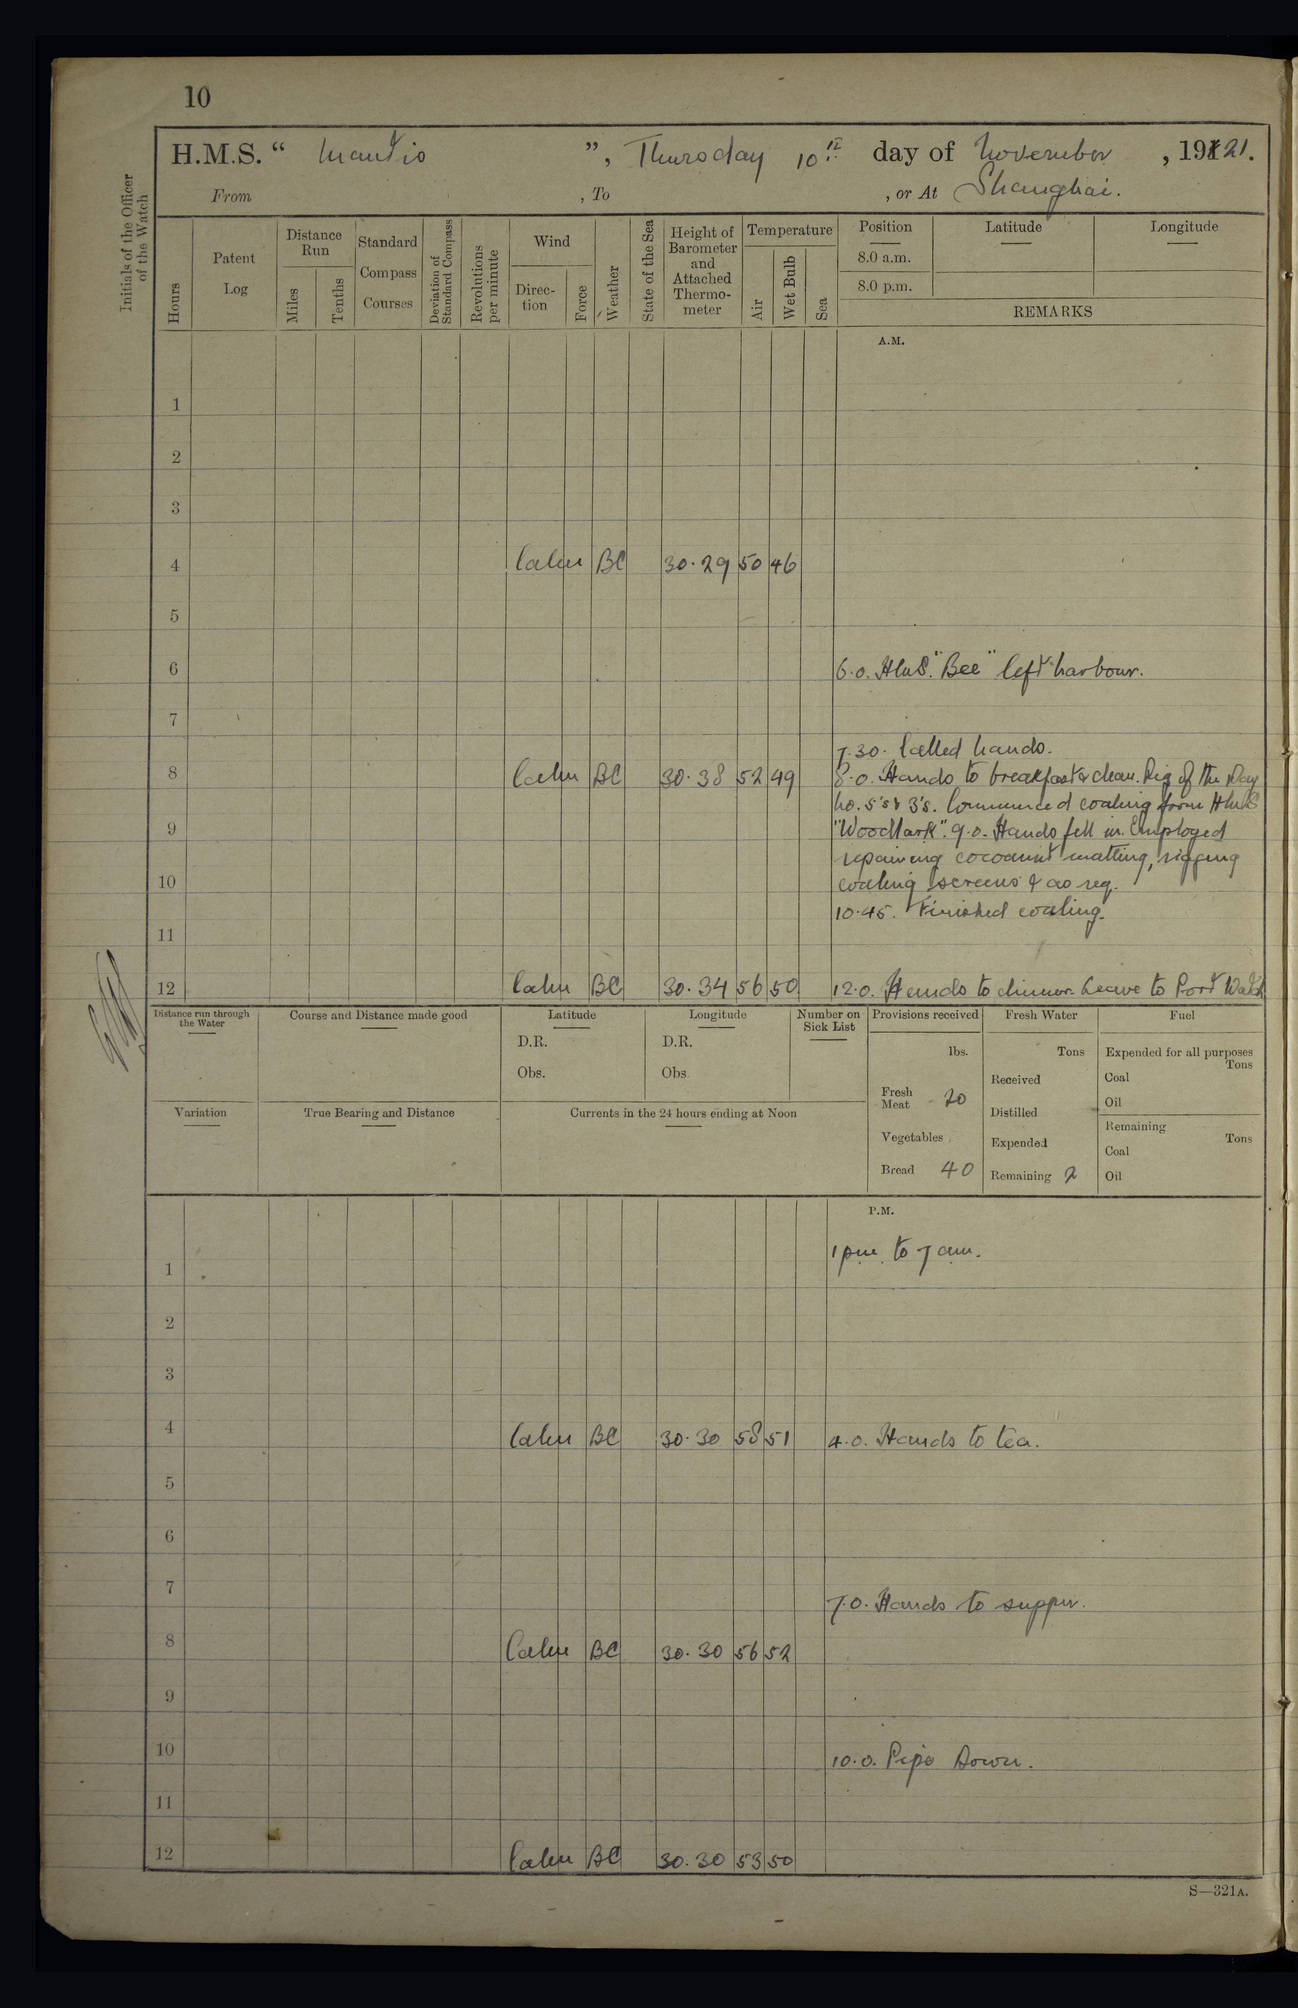 10
H.M.S. “ Mantis ”, Thursday 10th day of November , 1921.
From , To , or At Shanghai.
Initials of the Officer of the Watch
Hours
Patent Log
Distance Run
Miles
Tenths
Standard Compass Courses
Deviation of Standard Compass
Revolutions per minute
Wind
Direction
Force
Weather
State of the Sea
Height of Barometer and Attached Thermometer
Temperature
Air
Wet Bulb
Sea
Position
8.0 a.m.
8.0 p.m.
Latitude
Longitude
REMARKS
A.M.
1
2
3
4 Calm BC 30.29 50 46
5
6 6.0. HMS. "Bee" left harbour.
7
7.30. Called hands.
8 Calm BC 30.38 52 49 8.0. Hands to breakfast & clean. Rig of the Day
No. 5's & 3's. Commenced coaling from HMS
9 "Woodlark". 9.0. Hands fell in. Employed
repairing cocoanut matting, rigging
10 coaling screens & as req.
10.45. Finished coaling.
11
12 Calm BC 30.34 56 50 12.0. Hands to dinner. Leave to Port Watch
Distance run through the Water
Course and Distance made good
Latitude
D.R.
Obs.
Longitude
D.R.
Obs
Number on Sick List
Provisions received
lbs.
Fresh Meat 20
Vegetables
Bread 40
Fresh Water
Tons
Received
Distilled
Expended
Remaining 2
Fuel
Expended for all purposes
Tons
Coal
Oil
Remaining
Tons
Coal
Oil
Variation
True Bearing and Distance
Currents in the 24 hours ending at Noon
P.M.
1 pm to 7 am.
1
2
3
4 Calm BC 30.30 58 51 4.0. Hands to tea.
5
6
7 7.0. Hands to supper.
8 Calm BC 30.30 56 52
9
10 10.0. Pipe Down.
11
12 Calm BC 30.30 53 50
S—321A.